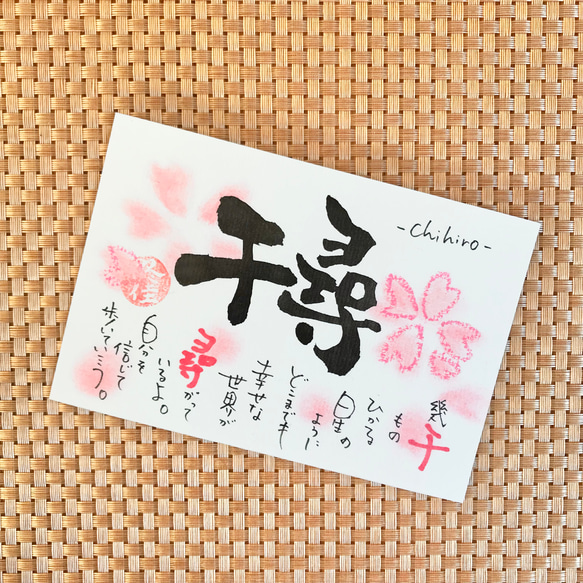 千尋
-Chihiro-
幾千
もの
ひかる
星の
ように
どこまでも
幸せな
世界が
尋がって
いるよ。
自分を
信じて
歩いていこう。